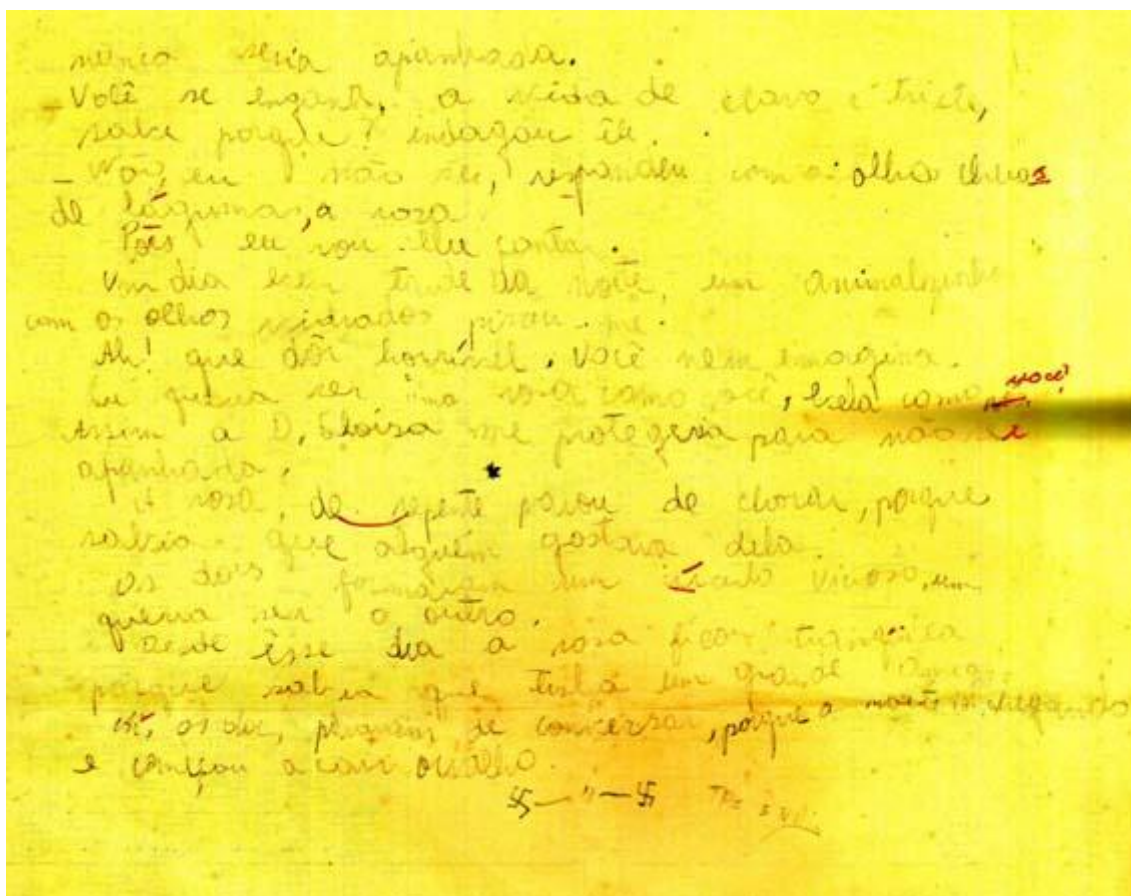 nunca seria apanhada.
- Você se engana, a vida de cravo é triste,
sabe porque? indagou êle.
- Não, eu não sei, respondeu com o olho cheios
de lágrimas, a rosa.
Pois eu vou lhe contar.
Um dia bem tarde da noite, um animalzinho
com os olhos vidrados pisou-me.
Ah! que dôr horrível. Você nem emagina.
Eu queria ser uma rosa como você, bela como você
Assim a D. Eloisa me protegeria para não ser
apanhada.
A rosa, de repente parou de chorar, porque
sabia que alguém gostava dela.
Os dois formavam um círculo vicioso, um
queria ser o outro.
Desde êsse dia a rosa ficou tranquila
porque sabia que tinha um grande amigo.
os dois, de conversar, porque a noite chegando
e começou a cair orvalho.
卐—"—卐